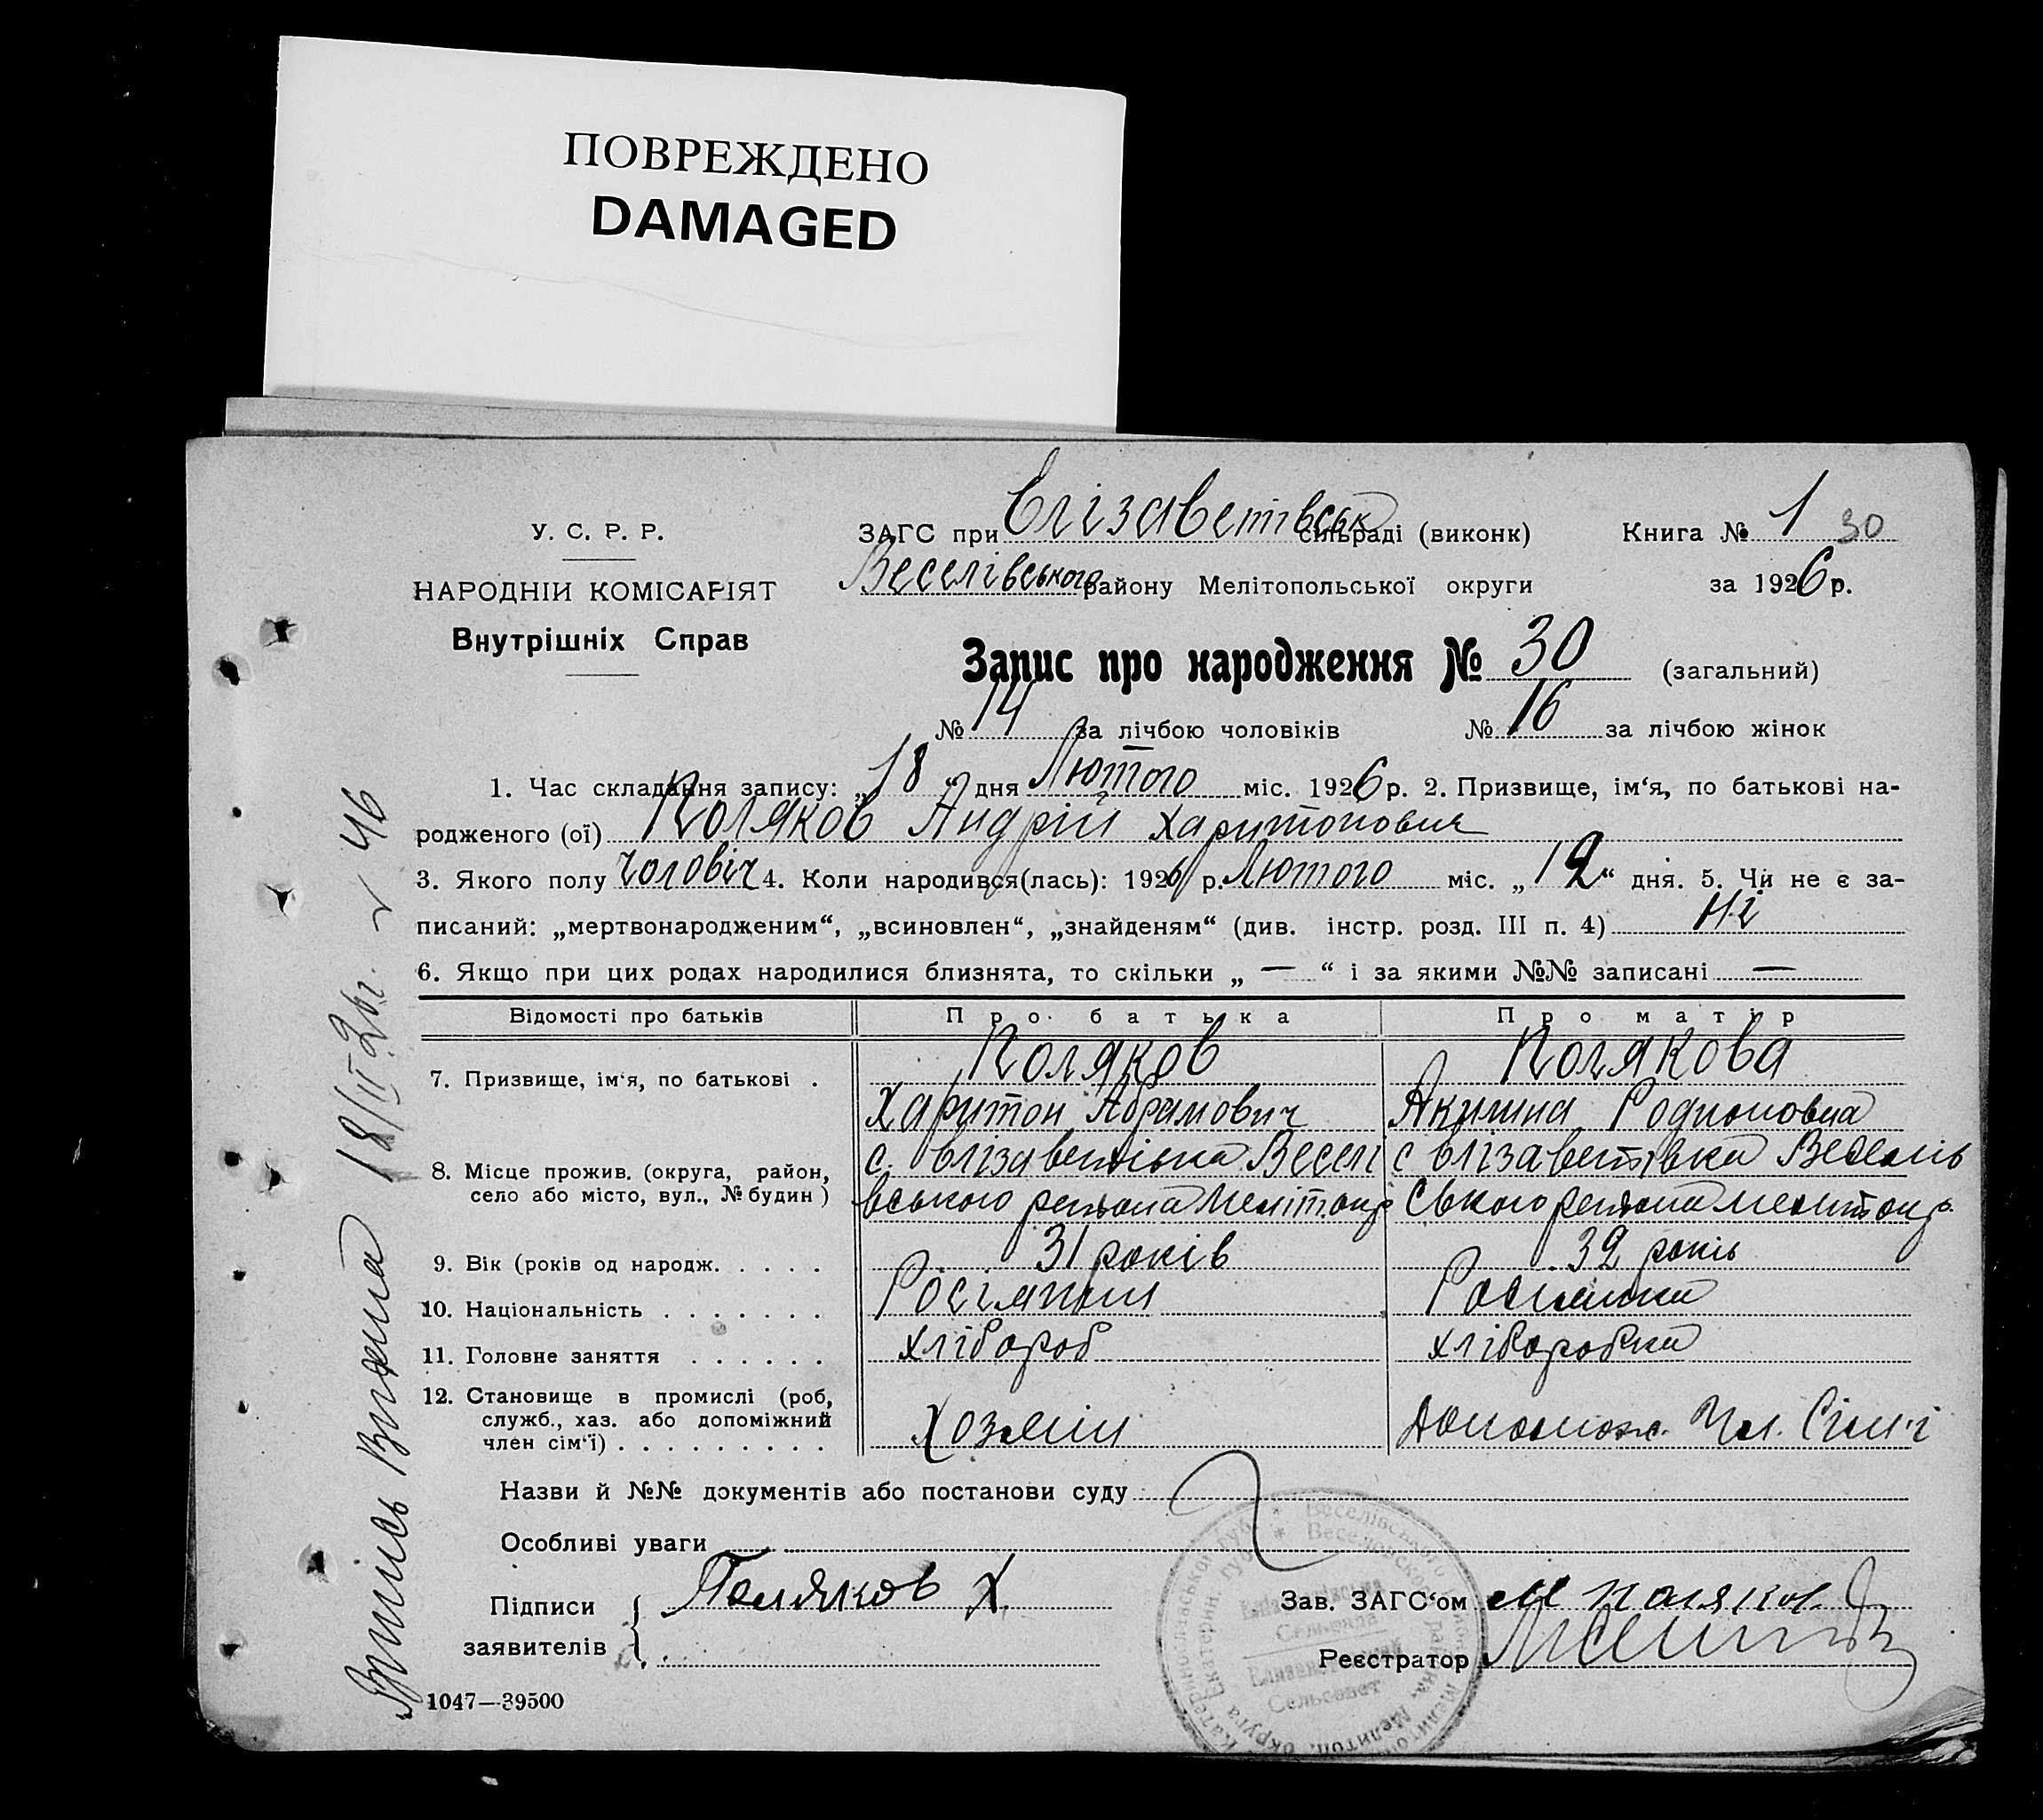 ПОВРЕЖДЕНО
DAMAGED
У. С. Р. Р.
НАРОДНІЙ КОМІСАРІЯТ
Внутрішніх Справ
ЗАГС при Єлізаветівськ сільраді (виконк)
Веселівського району Мелітопольської округи
Книга № 1 30
за 1926 р.
Запис про народження № 30 (загальний)
№ 14 за лічбою чоловіків № 16 за лічбою жінок
1. Час складання запису: „18“ дня Лютого міс. 1926 р. 2. Призвище, ім‘я, по батькові на-
родженого (ої) Поляков Андрій Харитонович
3. Якого полу чоловіч 4. Коли народився(лась): 1926 р. Лютого міс. „12“ дня. 5. Чи не є за-
писаний: „мертвонародженим“, „всиновлен“, „знайденям“ (див. інстр. розд. III п. 4) Ні
6. Якщо при цих родах народилися близнята, то скільки „ — “ і за якими №№ записані —
Відомості про батьків Про батька Про матір
7. Призвище, ім‘я, по батькові . Поляков Полякова
Харитон Абрамович Акилина Родионовна
8. Місце прожив. (округа, район, с. Єлізаветівка Веселі с Єлізаветівка Веселів
село або місто, вул., № будин ) вського району Меліт. окр ського району Мелит окр.
9. Вік (років од народж. . . . . 31 років 32 років
10. Національність . . . . . . . Росіянин Росиянка
11. Головне заняття . . . . . . хлібороб хліборобка
12. Становище в промислі (роб,
служб., хаз. або допоміжний Хозяін Допомож. Чл. Сім'ї
член сім‘ї) . . . . . . . . .
Назви й №№ документів або постанови суду
Особливі уваги
Підписи Поляков Х.
заявителів
Зав. ЗАГС‘ом М Поляков
Реєстратор
1047—39500
18/II 26 г. № 46
Сельрада
Сельсовет